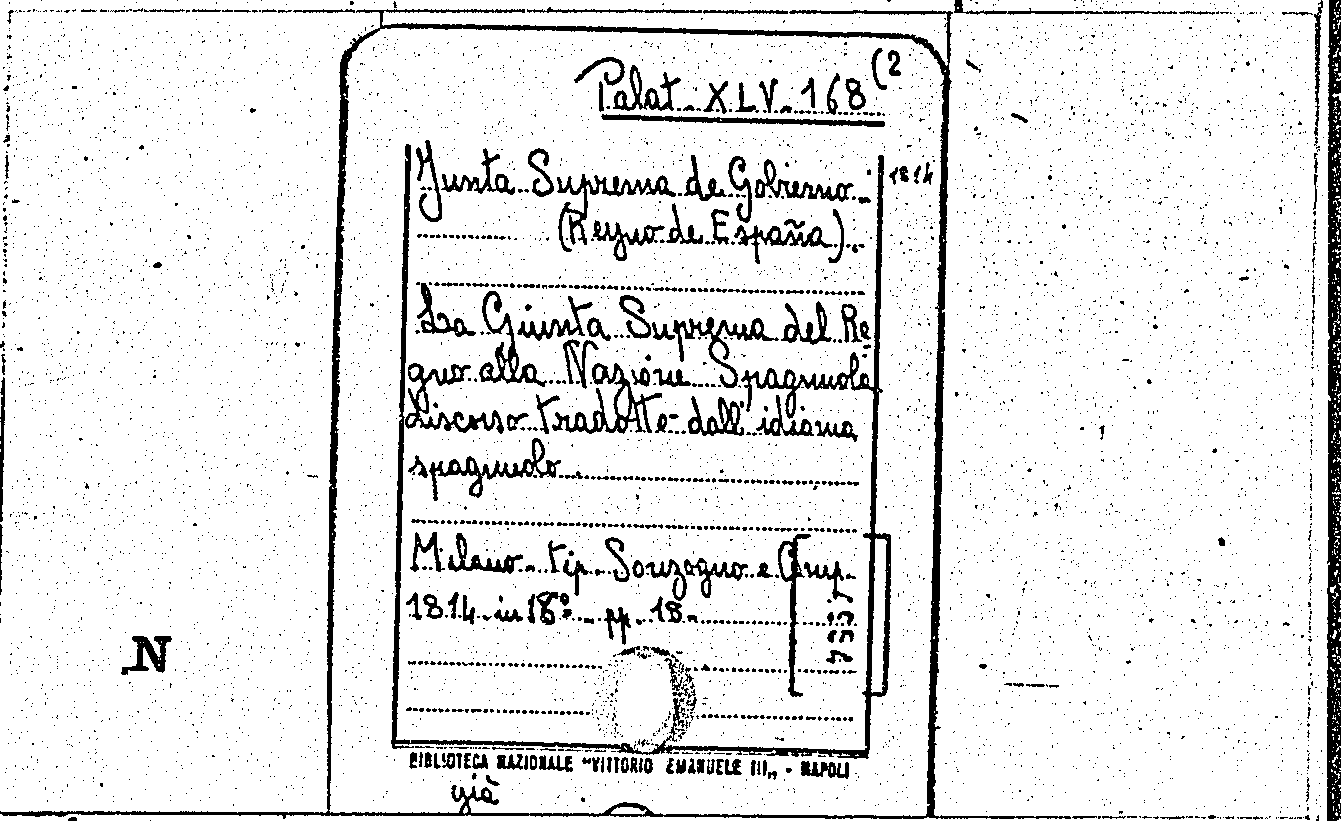 Palat. XLV. 168 (2
Junta Suprema de Gobierno.
1814
(Reyno de España).
La Giunta Suprema del Re=
gno alla Nazione Spagnuola
Discorso tradotto dall'idioma
spagnuolo.
Milano. tip. Sonzogno e Comp.
1814. in 18º. pp. 18.
BIBLIOTECA NAZIONALE "VITTORIO EMANUELE III„ - NAPOLI
già
N